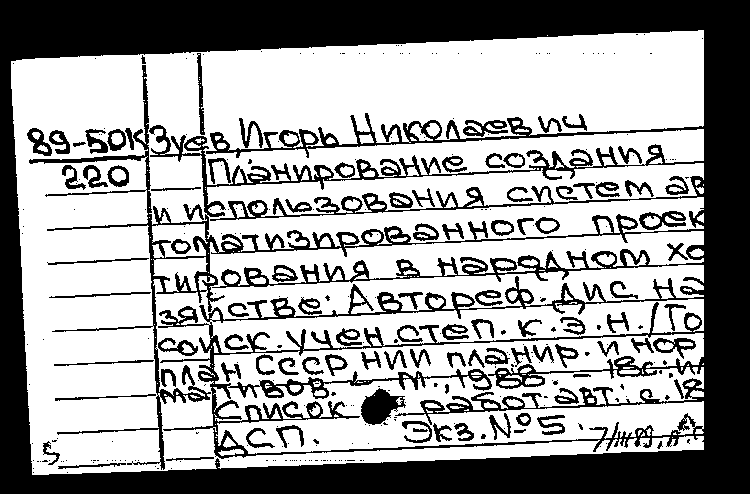 89-50К Зуев, Игорь Николаевич
220 Планирование создания
и использования систем ав
томатизированного проек
тирования в народном хо
зяйстве: Автореф. Дис. на
соиск. учен. степ. к.э.н./Го
план СССР, НИИ планир. и нор
мативов. – М., 1988. – 18с.: ил
Список работ авт.: с. 18
ДСП. Экз. №5.
5